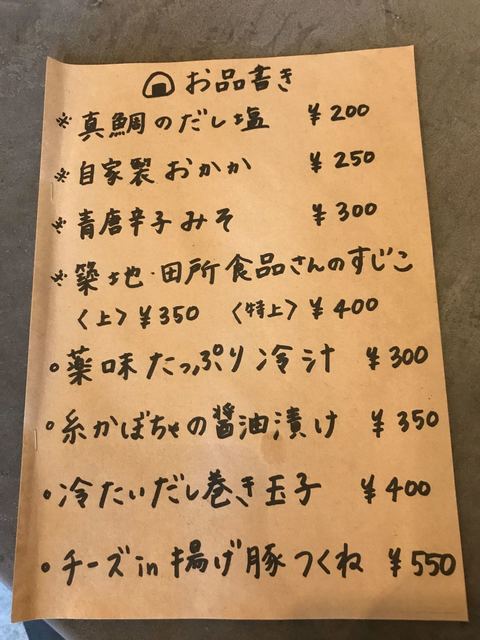 お品書き
※真鯛のだし塩 ¥200
※自家製おかか ¥250
※青唐辛子みそ ¥300
※築地・田所食品さんのすじこ
〈上〉¥350 〈特上〉¥400
○薬味たっぷり冷汁 ¥300
○糸かぼちゃの醤油漬け ¥350
○冷たいだし巻き玉子 ¥400
○チーズin揚げ豚つくね ¥550